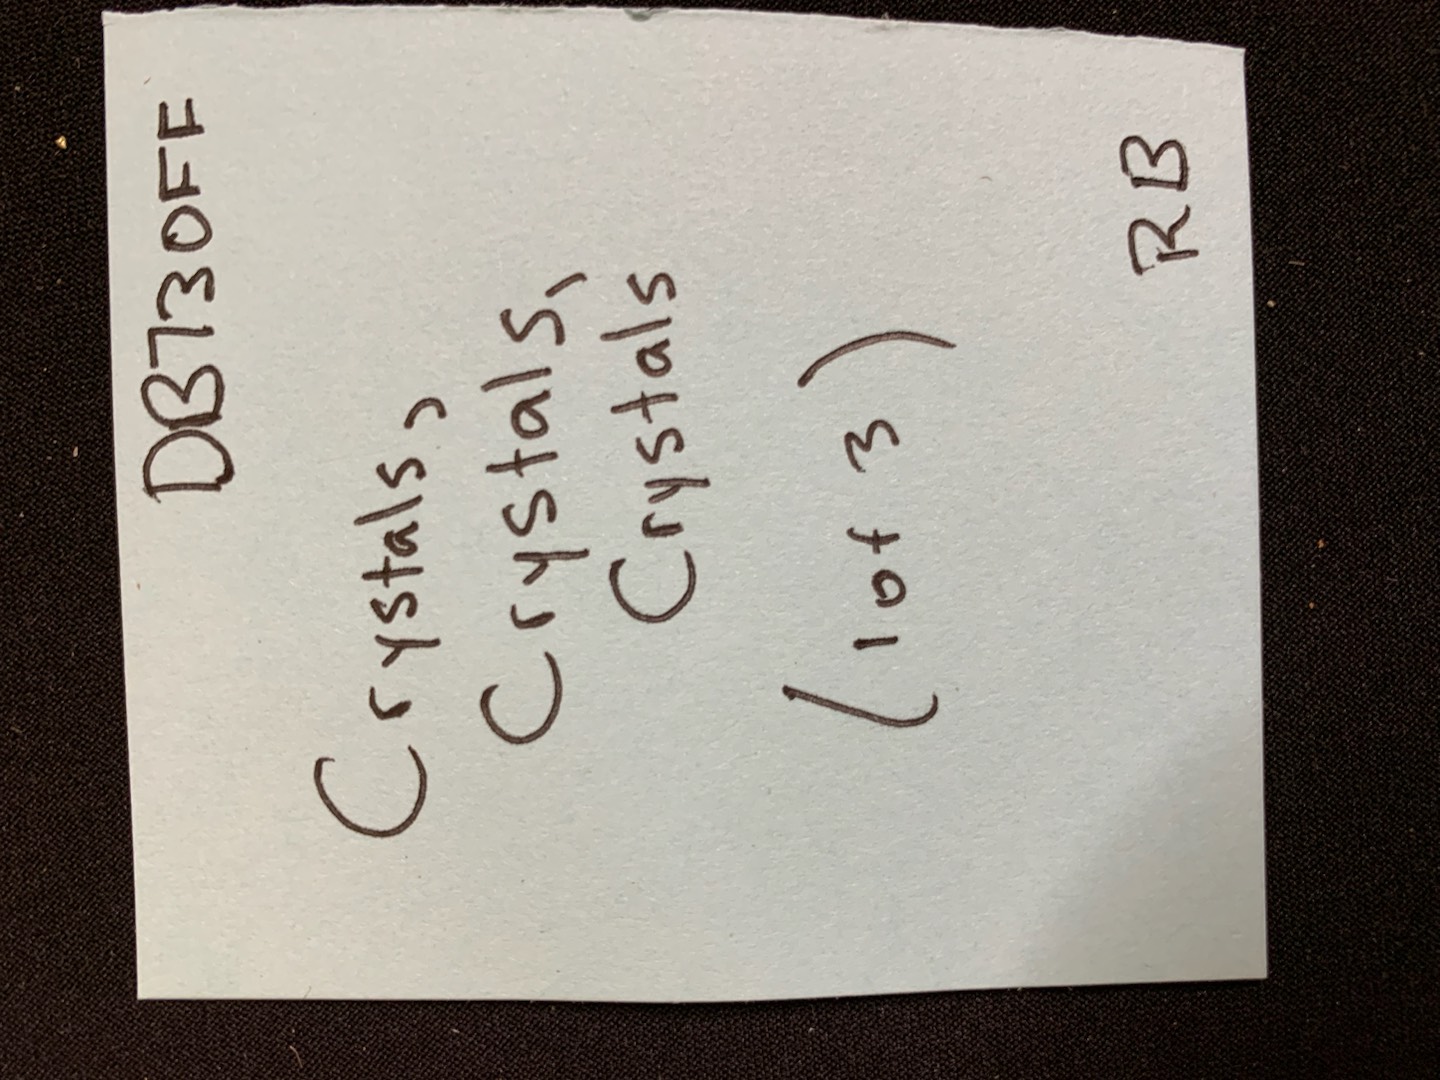 DB730FF
Crystals,
Crystals,
Crystals
(1of 3)
RB